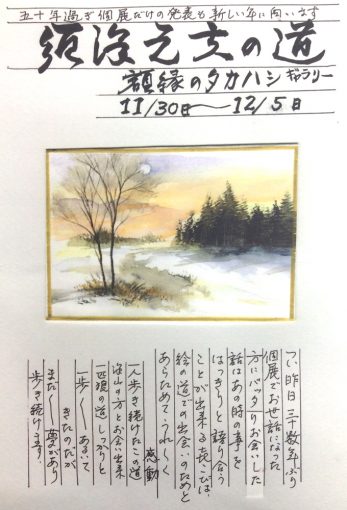 五十年過ぎ個展だけの発表も新しい年に向います
須治元文の道
額縁のタカハシギャラリー
11/30日〜12/5日
つい昨日三十数年ぶり
個展でお世話になった
方にバッタリお会いした
話はあの時の事を
はっきりと語り合う
ことが出来る喜びは、
絵の道での出会いのためと
あらためてうれしく
感動
一人歩き続けたこの道
沢山の方とお会い出来
一匹狼の道しっかりと
一歩一歩あるいて
きたのだが
まだまだ夢があり
歩き続けます!